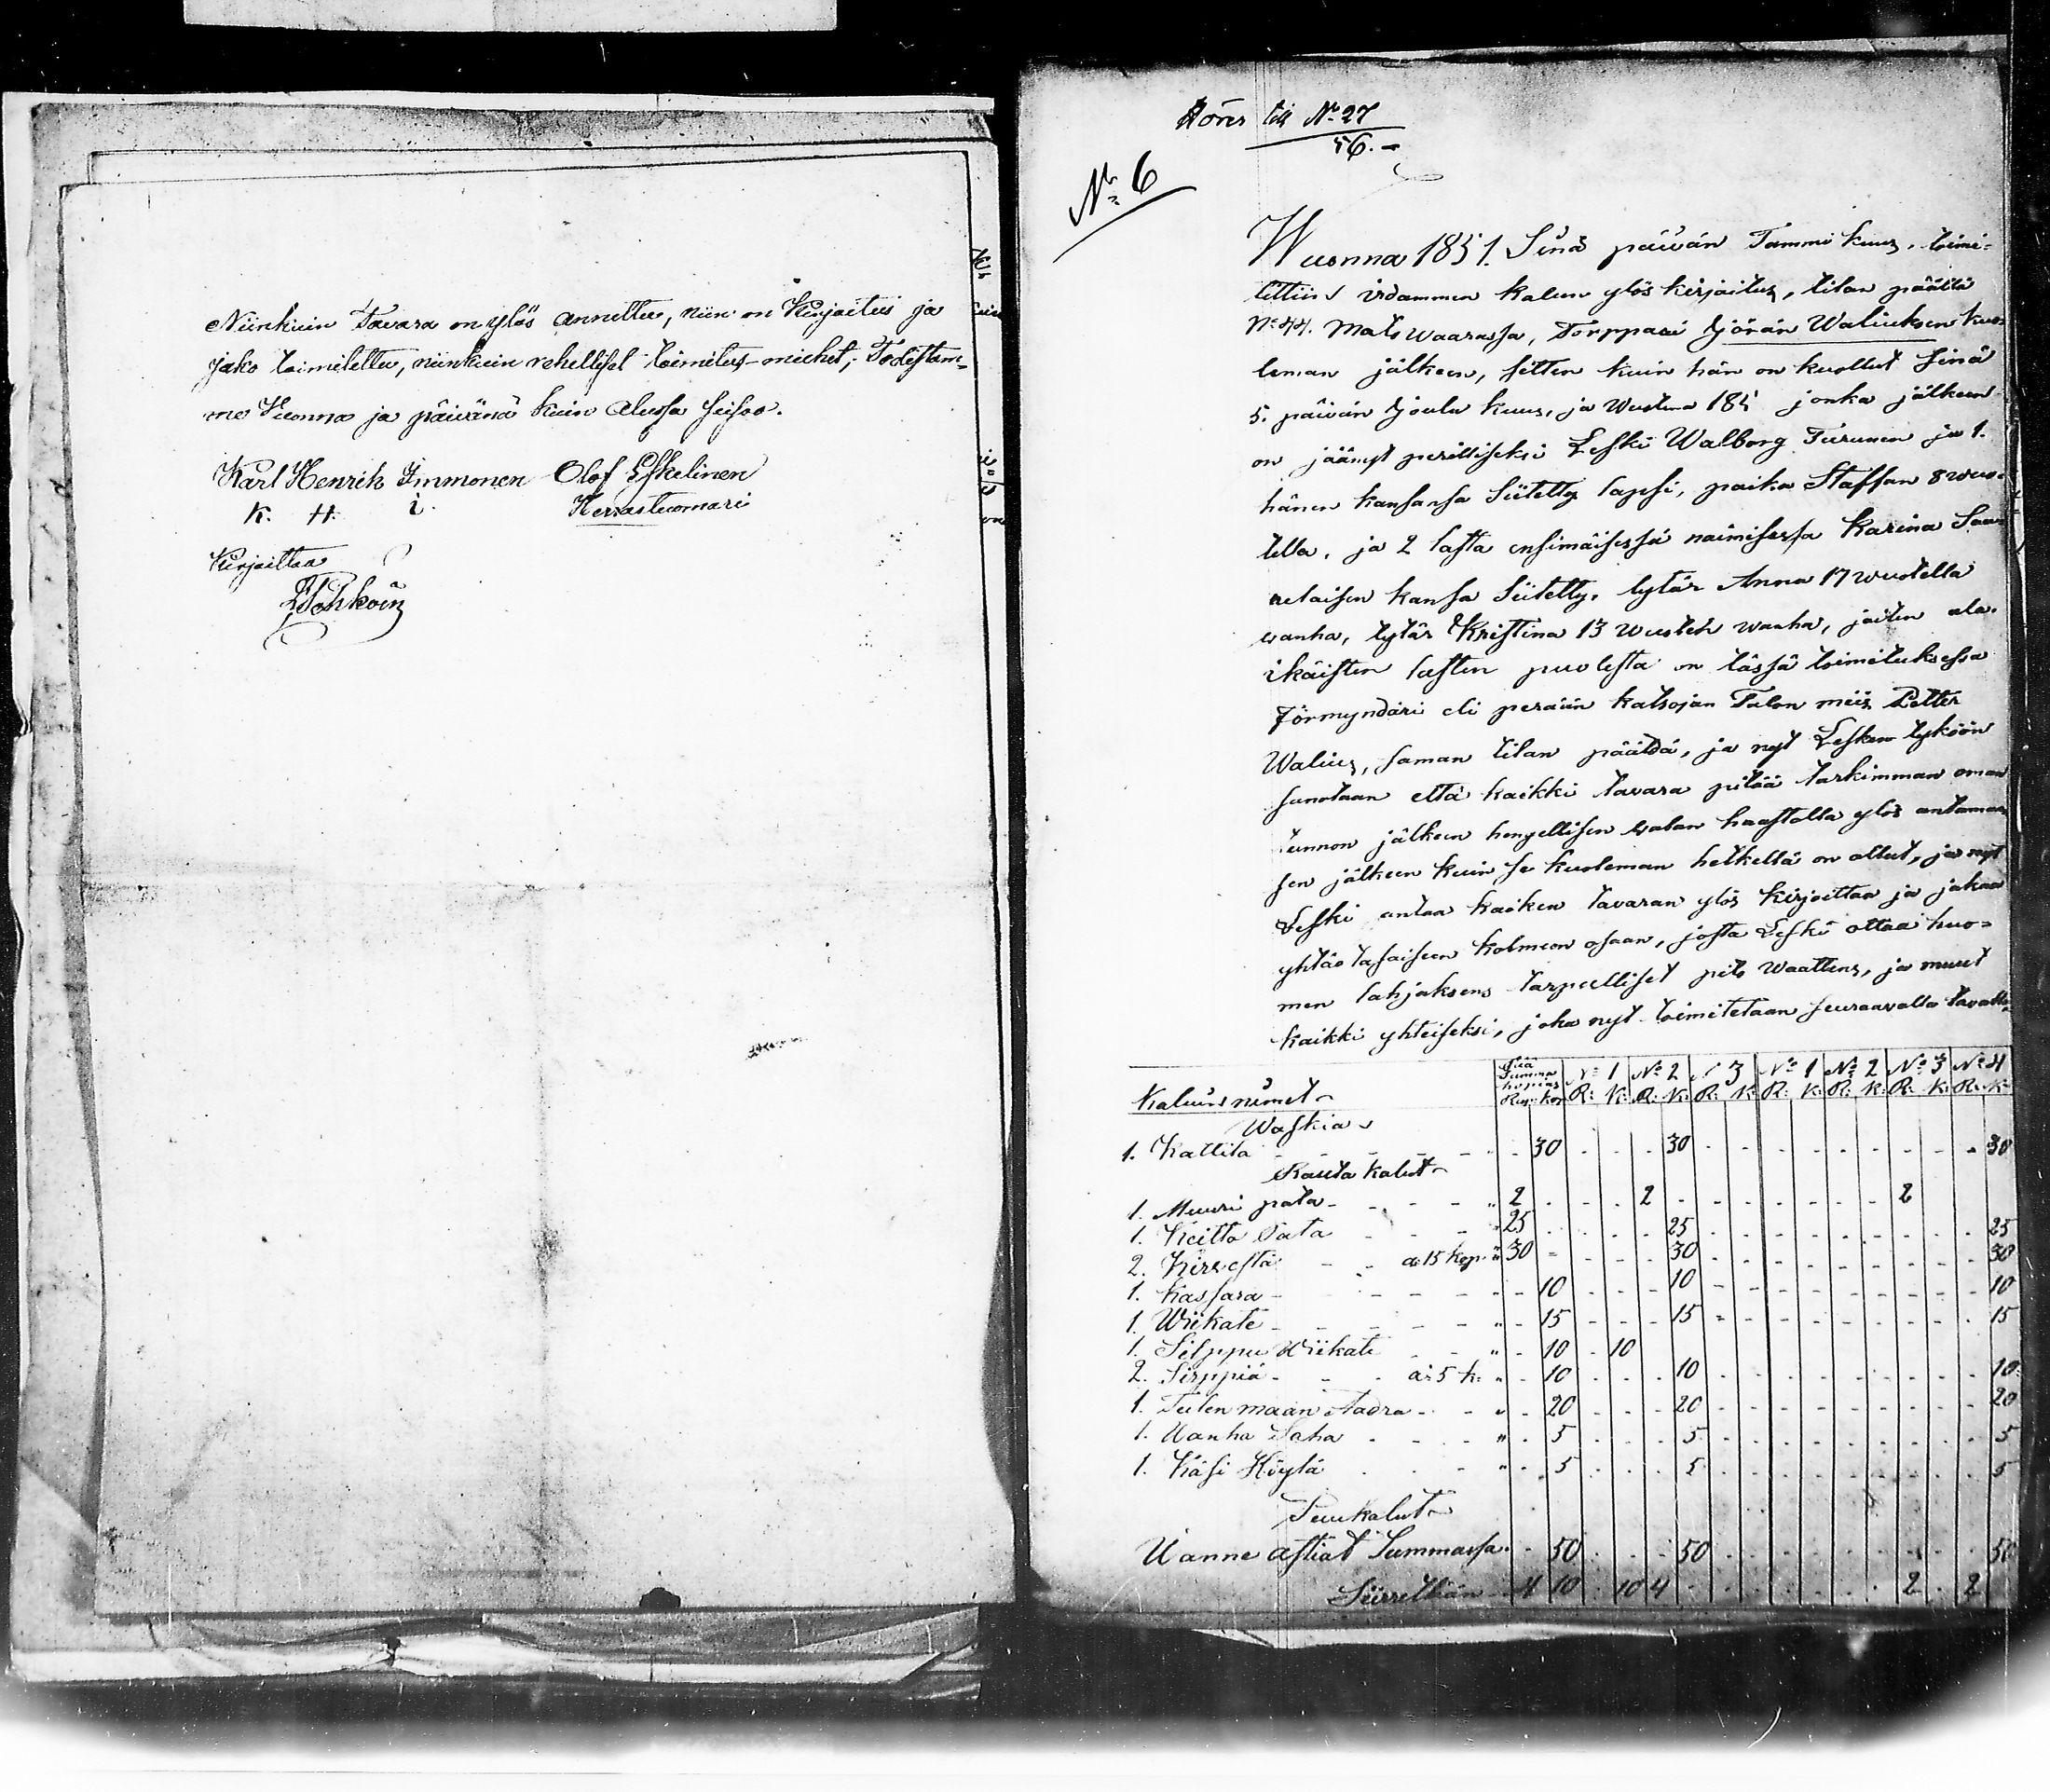 Niinkuin Tavara on ylös annettu, niin on Kirjoitus ja
Jako toimitettu, niinkuin rehelliset toimitus-miehet; Todistam-
me Vuonna ja päivänä kuin Alussa seisoo.
Karl Henrik Immonen Olof Eskelinen
K. H. i. Herrastuomari
Kirjoittaa
Hörer till No 27
56.-
No 6
Wuonna 1851. Sinä päivän Tammi kuus, toimi-
tettiin irdammen kalun ylös kirjoitus, tilan päällä
No 44. Mats Waarassa, Torppari Jörän Waliuksen kuo-
leman jälkeen, sitten kuin hän on kuollut sinä
5. päivän Joulu kuus, ja Wuonna 185 jonka jälkeen
on jäänyt perilliseksi Leski Walborg Turunen ja 1.
hänen kansansa Siitetty lapsi, poika Staffan 8 wuo-
tella, ja 2 lasta ensimäisessä naimisessa Karina
kansa Siitetty, tytär Anna 17 wuotella
wanha, tytär Kristina 13 Wuotela wanha, joiden ala-
ikäisten lasten puolesta on tässä toimituksessa
Förmyndäri eli perään katsojan Talon miis Petter
Walius, saman tilan päältä, ja nyt Lesken tyköön
sanotaan että kaikki tavara pitää tarkimman oman
tunnon jälkeen hengellisen walan haastolla ylös antaman
sen jälkeen kuin se kuoleman hetkellä on ollut, ja nyt
Leski antaa kaiken tavaran ylös kirjoittaa ja jakaa
yhtäs tasaiseen kolmeen osaan, josta Leski ottaa huo-
men lahjaksens tarpeelliset pito Waattens, ja muut
kaikki yhteiseksi, joka nyt toimitetaan seuraavalla tavalla,
Kaluin nimet Summa hopias Rup: Kop No 1 R: K: No 2 R: K: N 3 R: K: No 1 R: K: No 2 R: K: No 3 R: K: No 4 R: K:
Waskia
1. Kattila - - 30 - 30 - 30
Rauta kalut
1. Muuri pata - - 2 - 2 - 2
1. Keitto Pata - - 25 - 25 - 25
2. Kirvestä - - a 15 kop " 30 - 30 - 30
1. Kassara - - 10 - 10 - 10
1. Wiikate - - 15 - 15 - 15
1. Silppu Wiikate - - 10 - 10
2. Sirppiä - - a 5 k: - 10 - 10 - 10
1. Tulen maan Aadra - - 20 - 20 - 20
1. Wanha Saha - - 5 - 5 - 5
1. Käsi Höylä - - 5 - 5 - 5
Puukalut
Wanne astiat Summassa - 50 - 50 - 50
Siirretään 4 10 - 10 4 - 2 - 2